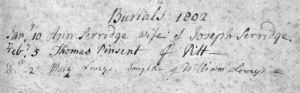 Burials. 1802
Jany 10 Ann Perridge wife of Joseph Perridge.
Feby 5 Thomas Pinsent of Pitt
2 Mary Loveys. daughter of William Loveys